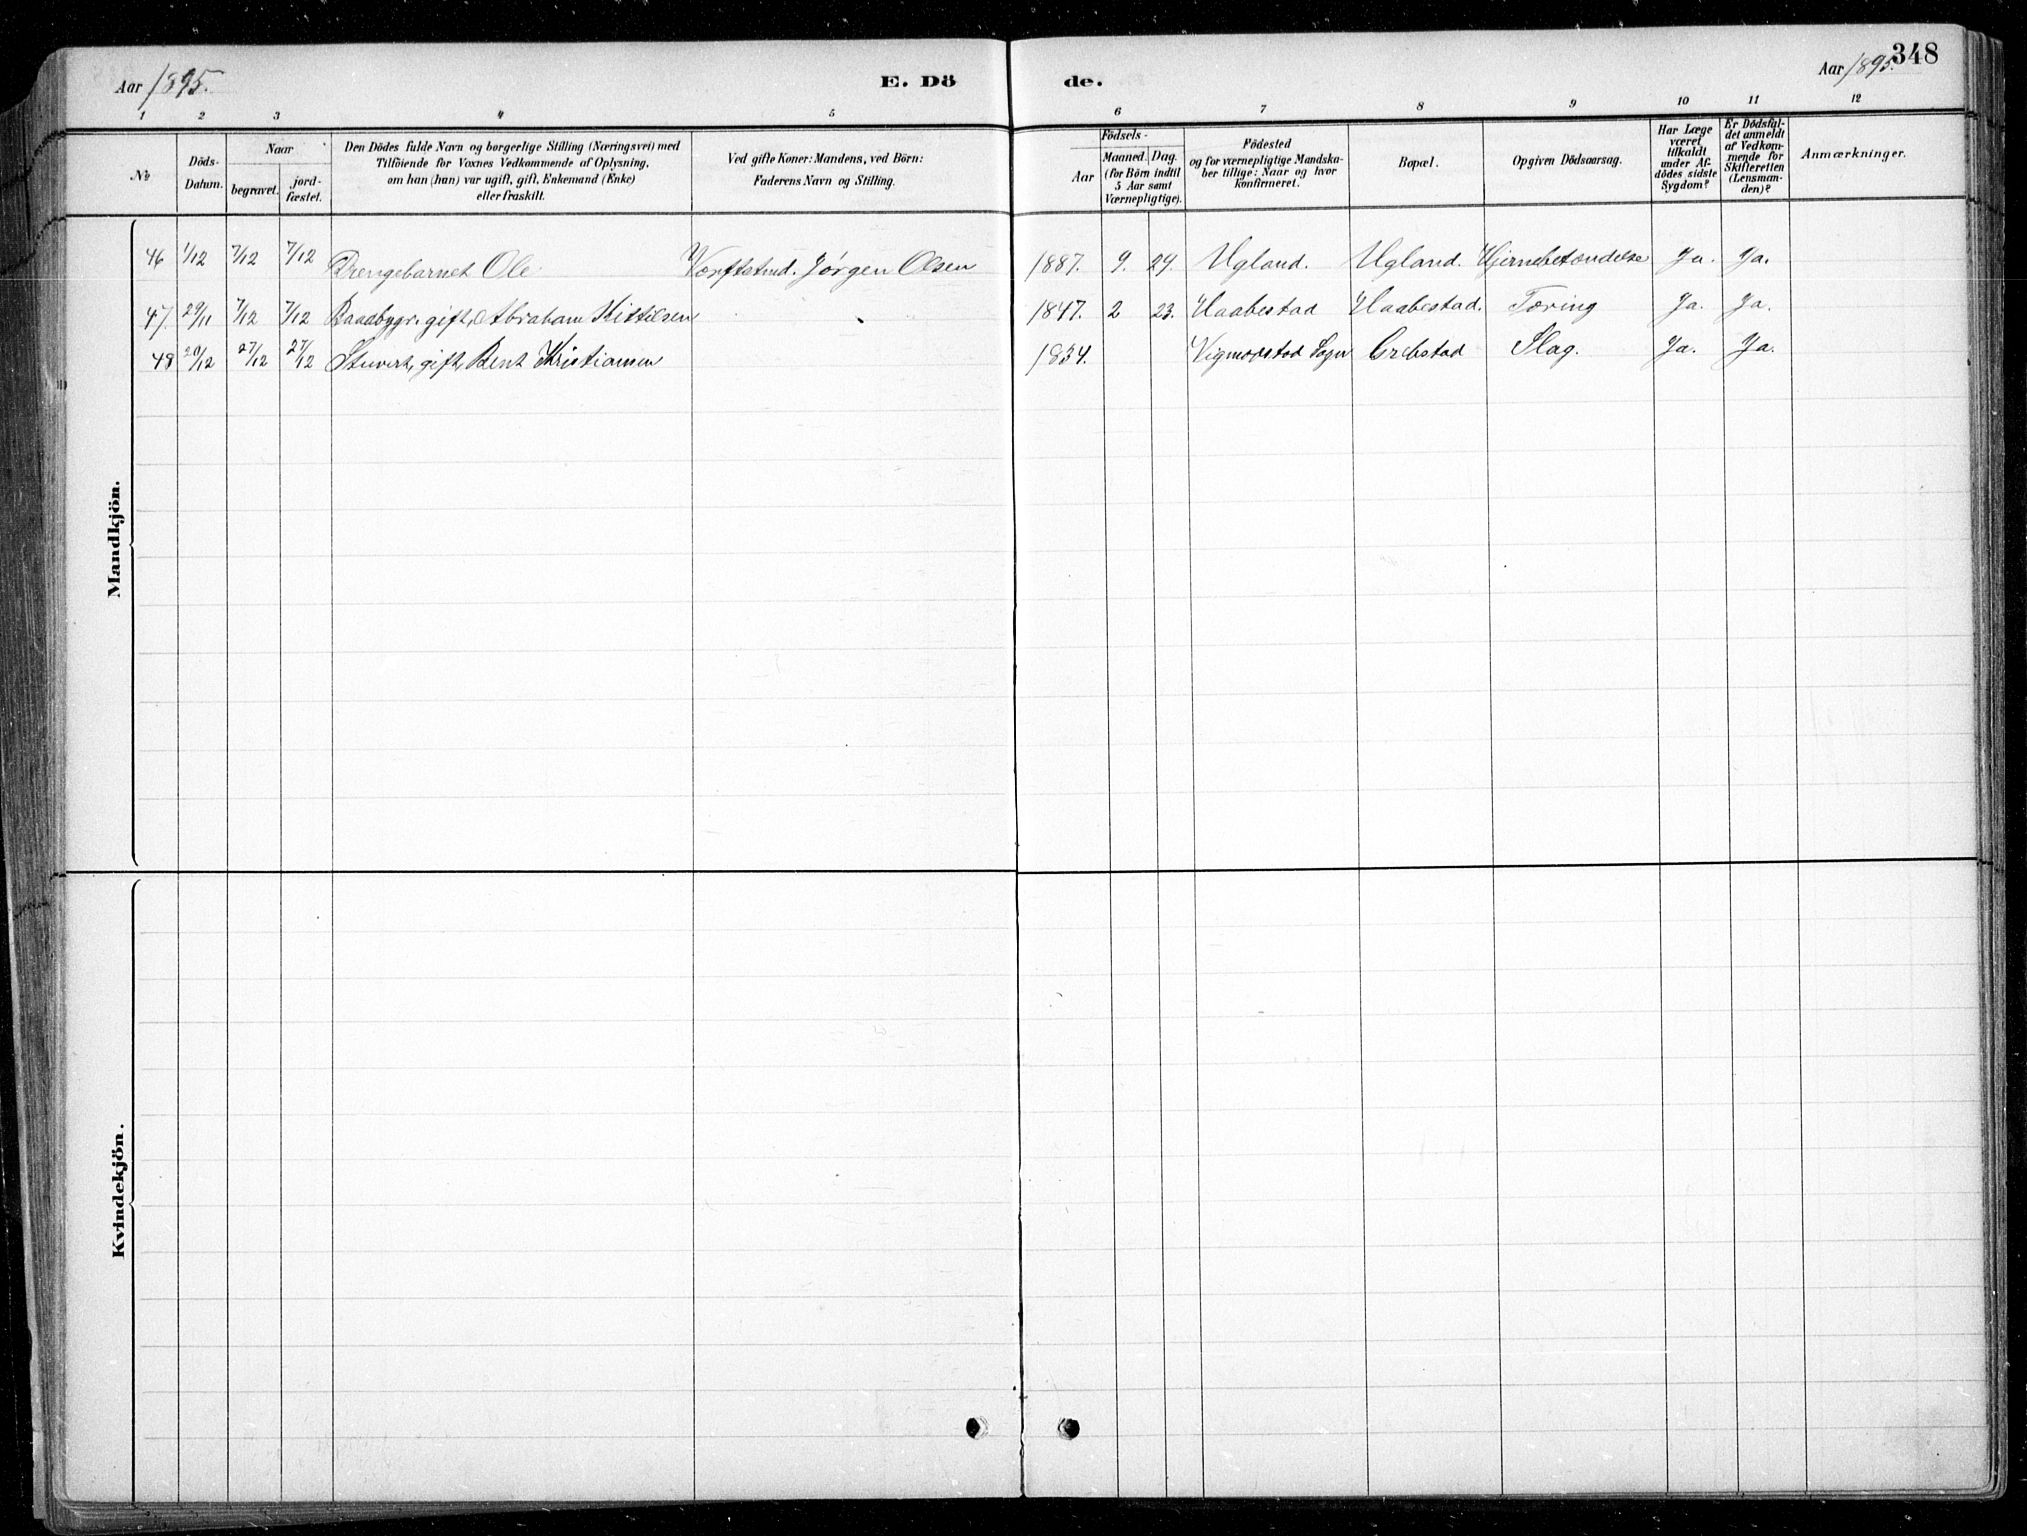 348
Aar 1895. E. Dö de. Aar 1895.
1 2 3 4 5 6 7 8 9 10 11 12
№
Döds-
Datum.
Naar
begravet.
jord-
fæstet.
Den Dödes fulde Navn og borgerlige Stilling (Næringsvei) med
Tilföiende for Voxnes Vedkommende af Oplysning,
om han (hun) var ugift, gift, Enkemand (Enke)
eller fraskilt.
Ved gifte Koner: Mandens, ved Börn:
Faderens Navn og Stilling.
Födsels-
Aar
Maaned. Dag.
(for Börn indtil
5 Aar samt
Værnepligtige).
Födested
og for værnepligtige Mandska-
ber tillige: Naar og hvor
konfirmeret.
Bopæl.
Opgiven Dödsaarsag.
Har Læge
været
tilkaldt
under Af-
dödes sidste
Sygdom?
Er Dödsfal-
det anmeldt
af Vedkom-
mende for
Skifteretten
(Lensman-
den)?
Anmærkninger.
Mandkjön.
46 1/12 7/12 7/12 Drengebarnet Ole Værftstmd. Jørgen Olsen 1887. 9. 24. Ugland. Ugland. Hjernebetændelse Ja. Ja.
47. 29/11 7/12 7/12 Baadbygr. gift, Abraham Kittilsen 1847. 2 23. Haabestad Haabestad. Tæring Ja. Ja.
48 20/12 27/12 27/12 Stuvert, gift, Bent Kristiansen 1834. Vigmostad Sogn Grebstad Slag. Ja. Ja.
Kvindekjön.